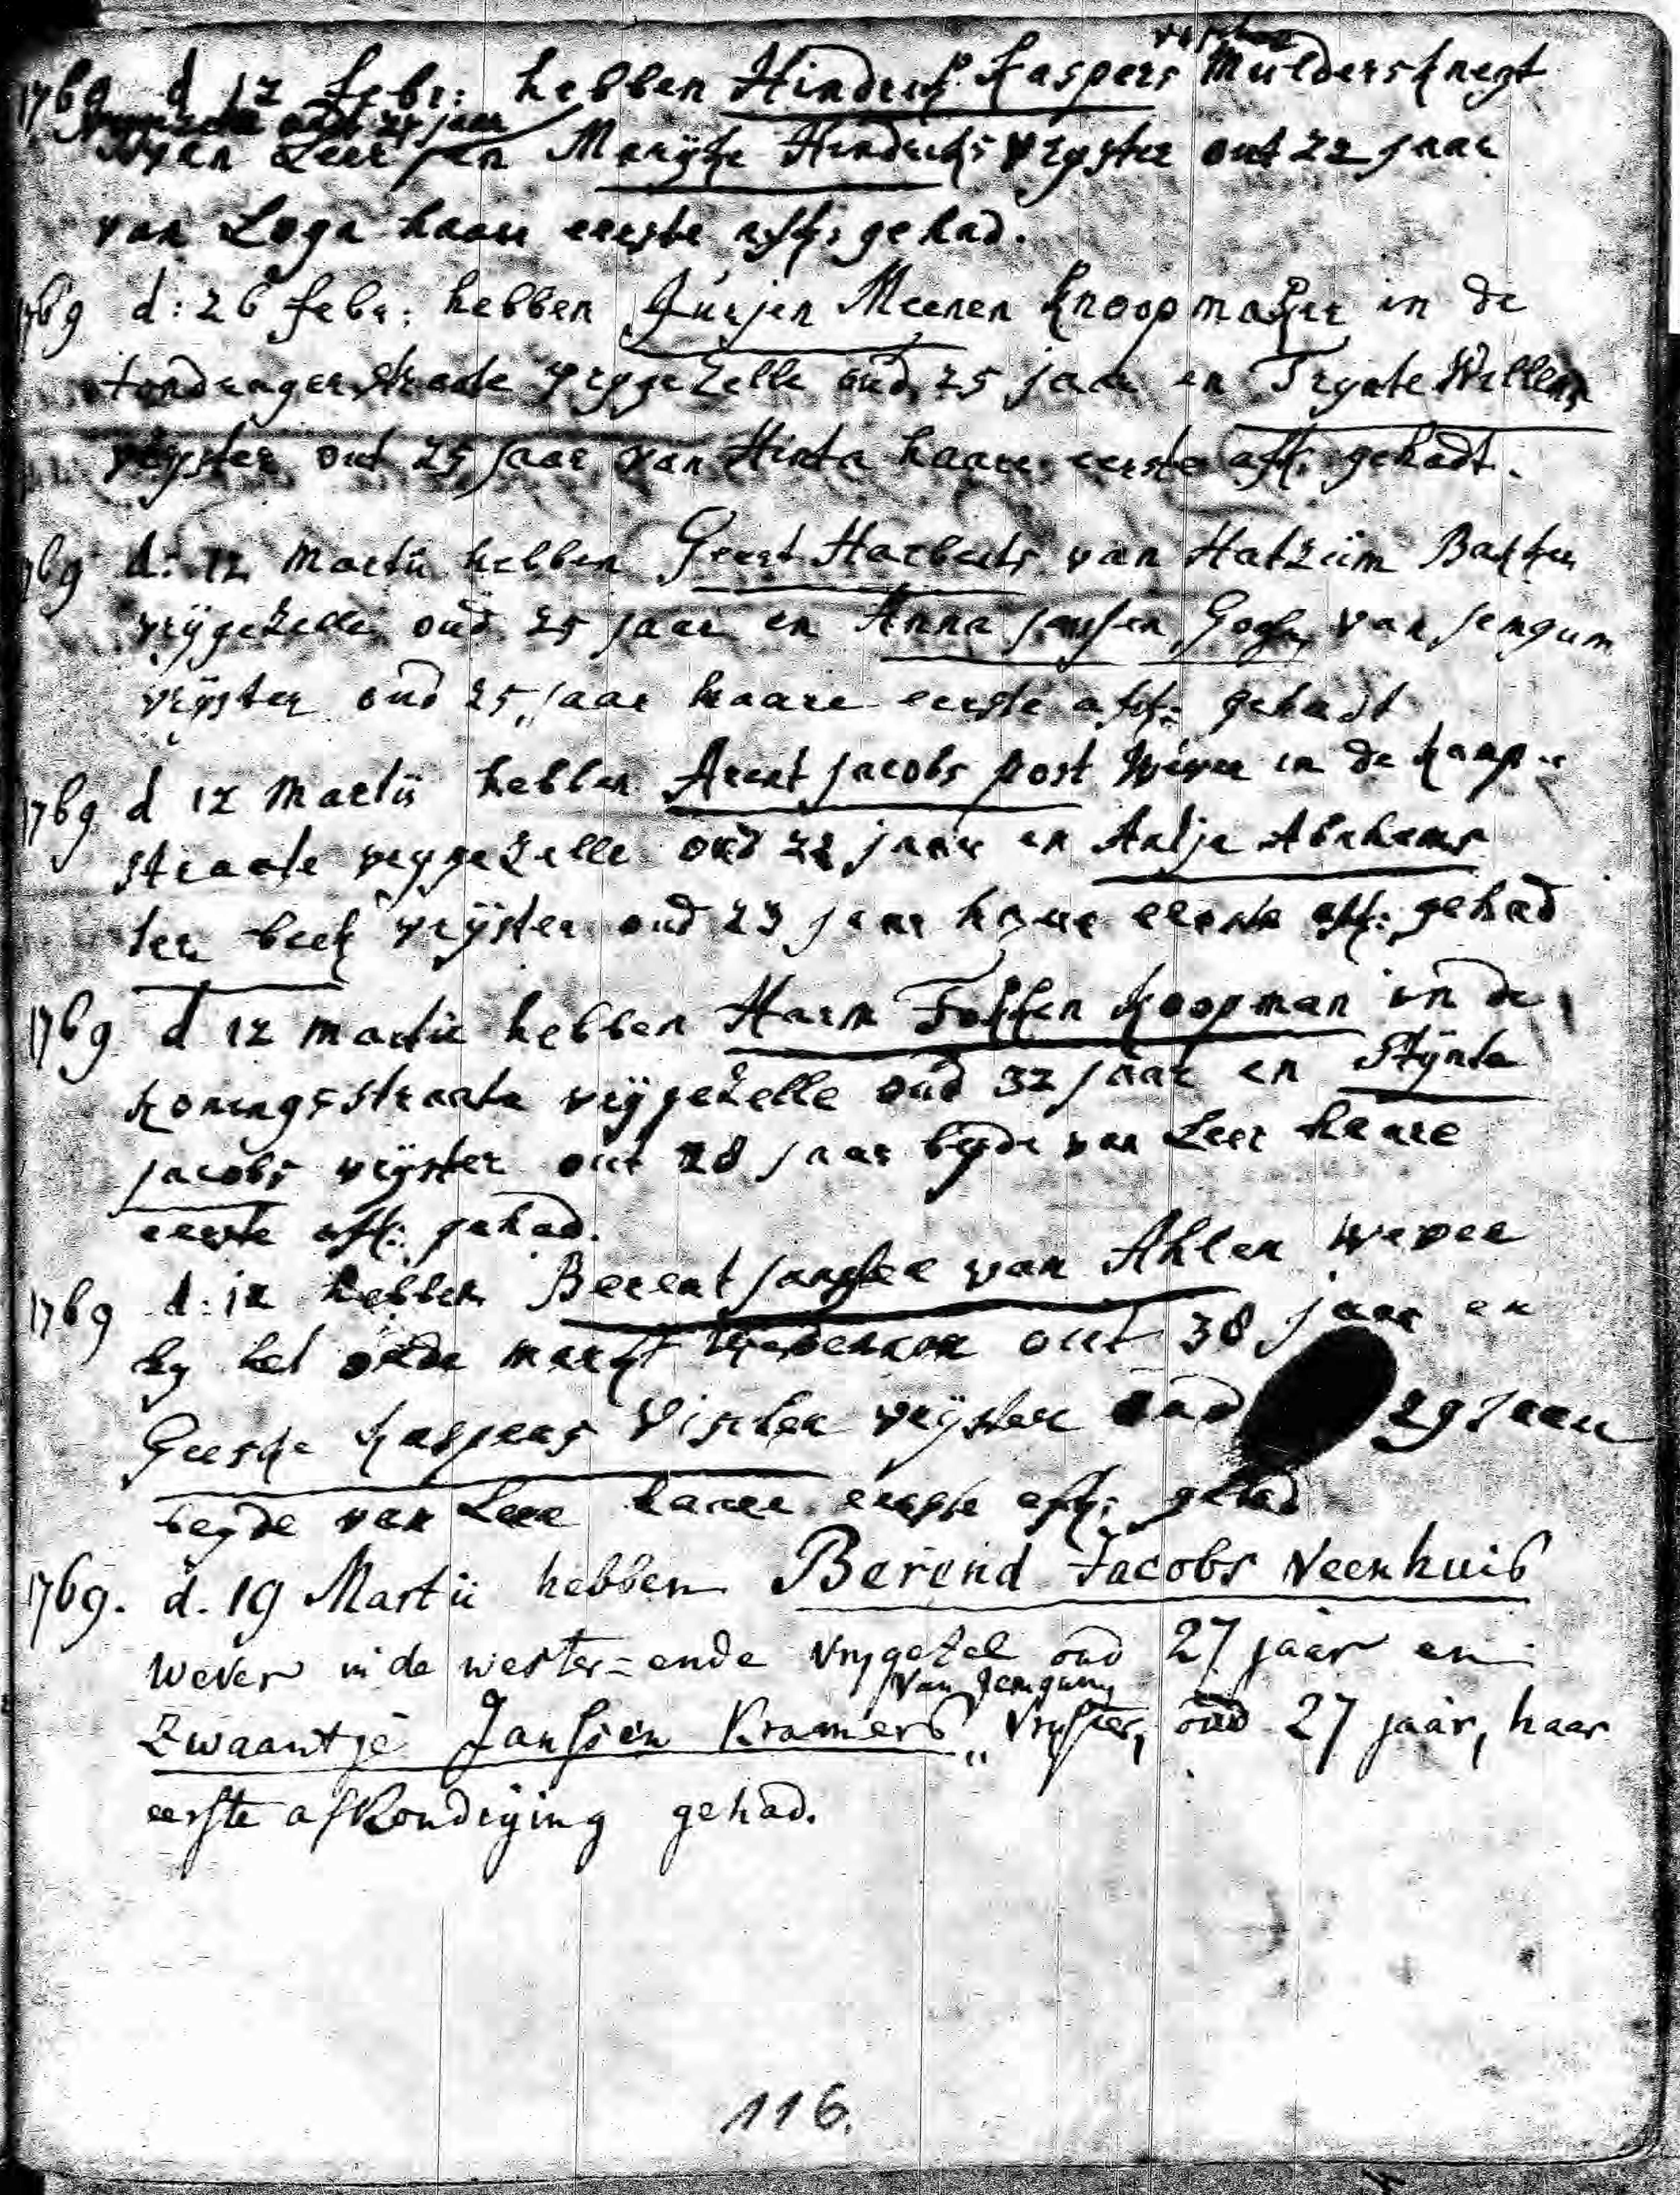 1769 d 12 febr: hebben Hindrik Kaspers Mulders knegt
oud 24 jaar
van Leer en Marijke Hindriks vryster out 22 jaar
van Loga haare eerste afk: gehad.
1769 d: 26 febr: hebben Jurjen Meenen knoopmaker in de
straate vrygezelle oud 25 jaar en Trynte Willems
vryster out 25 jaar van Hinta haare eerste afk: gehadt.
1769 d: 12 Martii hebben Geert Harberts van Hatzum Backer
vrijgezelle oud 25 jaar en Anna janssen van jemgum
vrijster oud 25 jaar haare eerste afk: gehadt
1769 d 12 Martii hebben Arent jacobs post Wever in de kamp-
straate vrygezelle oud 22 jaar en Antje Abrahams
ter beek vrijster oud 23 jaar haare eerste afk: gehad
1769 d 12 martii hebben Harm Fokken koopman in de
konings straate vrijgezelle oud 32 jaar en Stijnte
jacobs vrijster out 28 jaar beyde van Leer haare
eerste afk: gehad.
1769 d: 12 hebben Berent janssen van Ahlen Wever
by het oude markt out 38 jaar en
Geeske kaspers Visscher vrijster oud 29 jaar
beyde van Leer haare eerste afk: gehad
1769. d. 19 Martii hebben Berend Jacobs Veenhuis
wever in de wester=ende vrygezel oud 27 jaar en
van Jemgum
Zwaantje Janssen Kramers „ vryster, oud 27 jaar, haar
eerste afkondiging gehad.
116.